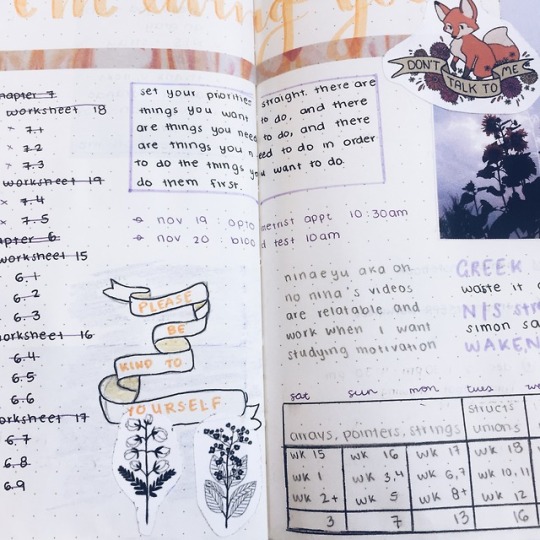 I'm doing
DON'T TALK TO ME
chapter 7
worksheet 18
* 7.1
* 7.2
* 7.3
worksheet 19
* 7.4
* 7.5
chapter 6
worksheet 15
6.1
6.2
6.3
worksheet 16
6.4
6.5
6.6
worksheet 17
6.7
6.8
6.9
set your priorities straight. there are
things you want to do, and there
are things you need to do, and there
are things you need to do in order
to do the things you want to do.
do them first.
nov 19 : optometrist appt 10:30am
nov 20 : blood test 10am
PLEASE
BE
KIND TO
YOURSELF
ninaeyu aka oh
no nina's videos
are relatable and
work when I want
studying motivation
GREEK
waste it
N/S
simon
WAKEN
sat sun mon tues
arrays, pointers, strings structs unions
wk 15 wk 16 wk 17 wk 18
wk 1 wk 3,4 wk 6,7 wk 10,11
wk 2+ wk 5 wk 8+ wk 12
3 7 13 16